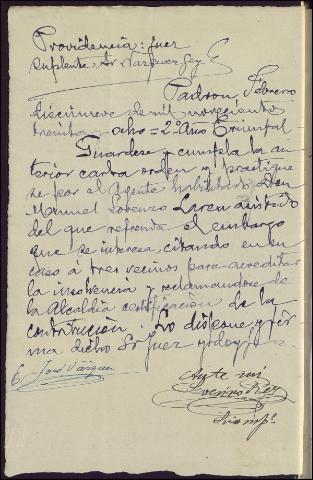 Providencia: Juez
suplente Sr Vazquez Rey
Padron, Febrero
diecinueve de mil novecientos
treinta y ocho = 2º Año Triunfal =
Guardese y cumpla la an
terior carta orden y practique
se por el Agente habilitado Don
Manuel Lorenzo Loren asistido
del que refrenda el embargo
que se interesa, citando en su
caso á tres vecinos para acreditar
la insolvencia y reclamandose de
la Alcaldia certificacion de la
contribucion. Lo dispone y fir
ma dicho Sr Juez y doy fe =
José Vazquez
Ante mi
Rey